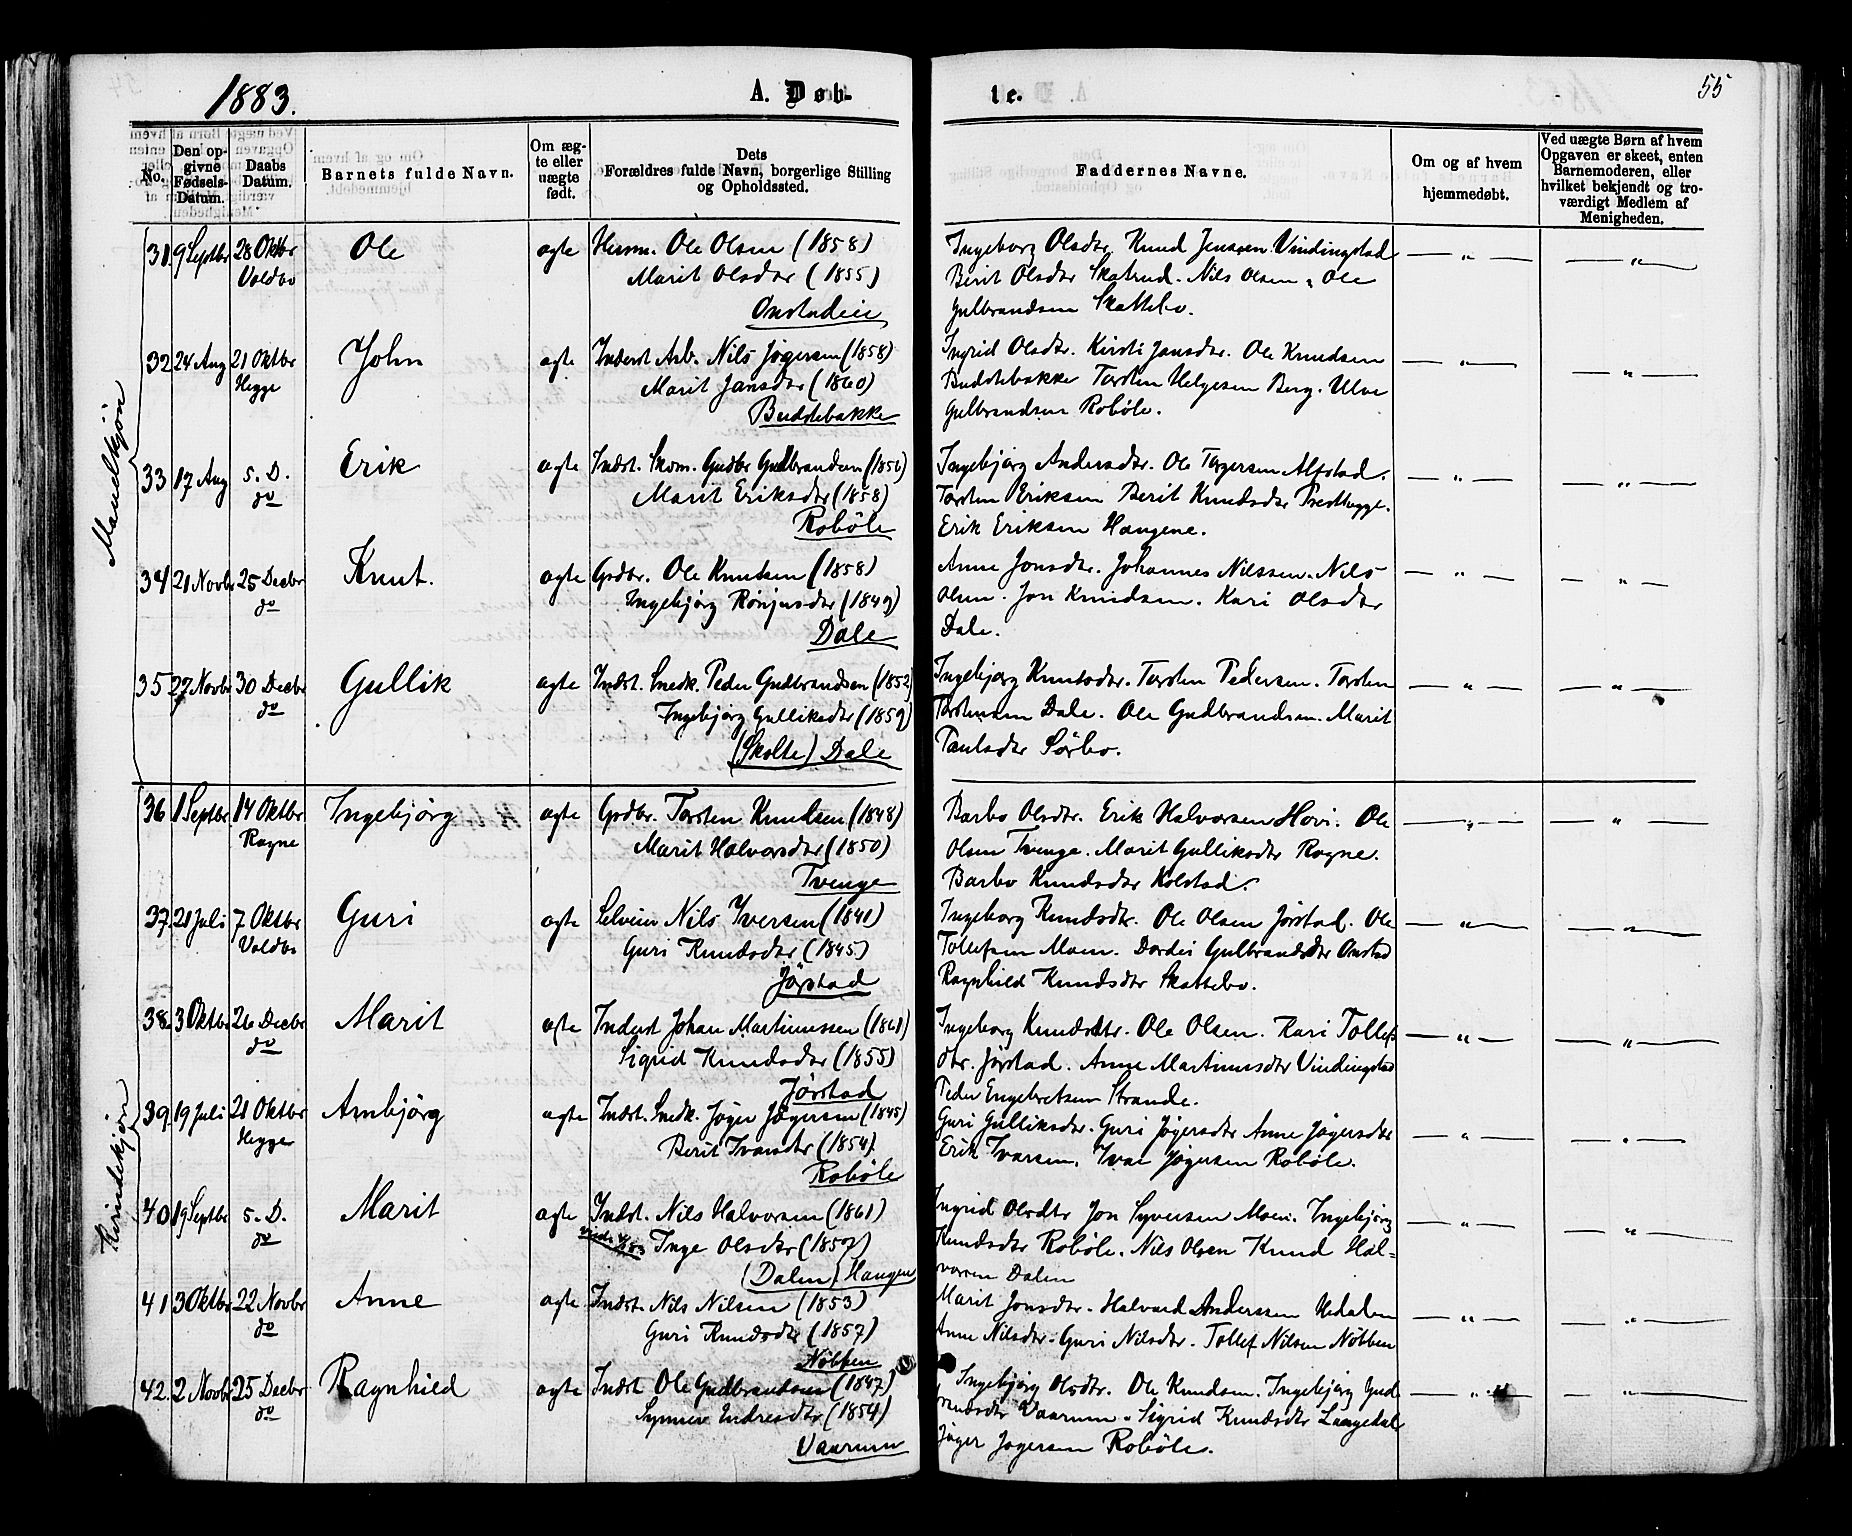 1883.
A. Døb-
te.
55
No.
Den op-
givne
Fødsels-
Datum.
Daabs
Datum.
Barnets fulde Navn.
Om æg-
te eller
uægte
født.
Dets
Forældres fulde Navn, borgerlige Stilling
og Opholdssted.
Faddernes Navne.
Om og af hvem
hjemmedøbt.
Ved uægte Børn af hvem
Opgaven er skeet, enten
Barnemoderen, eller
hvilket bekjendt og tro-
værdigt Medlem af
Menigheden.
Mandkjøn
31. 9 Septbr 28 Oktbr Ole ægte Husm. Ole Olsen (1858) Ingeborg Olsdtr. Knud Jensen Vindingstad
Voldbo Marit Olsdtr (1855) Berit Olsdtr Skatrud. Nils Olsen, Ole
Gulbrandsen Skattebo.
32 24 Aug 21 Oktbr John ægte Inderst Arb. Nils Jøgersen (1858) Ingrid Olsdtr. Kirsti Jansdtr. Ole Knudsen
Hegge Marit Jansdtr (1860) Buddebakke Torsten Helgesen Berg. Ulve
Buddebakke Gulbrandsen Robøle.
33 17 Aug s. D. Erik ægte Indst. Skom. Gudbr Gudbrandsen (1856) Ingebjørg Andersdtr. Ole Torgersen Alfstad.
do Marit Eriksdtr (1858) Torsten Eriksen Berit Knudsdtr Presthegge.
Robøle Erik Eriksen Haugene.
34 21 Novbr 25 Decbr Knut. ægte Grdbr. Ole Knutsen (1858) Anne Jonsdtr. Johannes Nilssen. Nils
do Ingebjørg (1849) Olsen. Jon Knudsen. Kari Olsdtr
Dale Dale.
35 27 Novbr 30 Decbr Gullik ægte Indst. Snedk. Peder Gudbrandsen (1852) Ingebjørg Knudsdtr. Torsten Pedersen. Torsten
do Ingebjørg Gulliksdtr (1859) Torstensen Dale. Ole Gudbrandsen. Marit
(Skolte) Dale Paulsdtr Sørbo.
Kvindekjøn
36 1 Septbr 14 Oktbr Ingebjørg ægte Grdbr. Torsten Knudsen (1848) Barbo Olsdtr. Erik Halvorsen Hovi. Ole
Rogne Marit Halvorsdtr (1850) Olsen Tvenge. Marit Gulliksdtr Rogne.
Tvenge Barbo Knudsdtr Kolstad.
37. 21 Juli 7 Oktbr Guri ægte Selveier Nils Yversen (1841) Ingeborg Knudsdtr. Ole Olsen Jørstad. Ole
Voldbo Guri Knudsdtr (1845) Tollefsen Moen. Dordei Gulbrandsdtr Onstad
Jørstad Ragnhild Knudsdtr Skattebo.
38. 3 Oktbr 26 Decbr Marit ægte Inderst Johan Martinussen (1861) Ingeborg Knudsdtr. Ole Olsen. Kari Tollefs
do Sigrid Knudsdtr (1855) dtr. Jørstad. Anne Martinusdtr Vindingstad
Jørstad Peder Engebretsen Strande.
39. 19 Juli 21 Oktbr Arnbjørg ægte Indst. Snedk. Jøger Jøgersen (1845) Guri Gulliksdtr. Guri Jøgersdtr Anne Jøgersdtr
Hegge Berit Ivarsdtr (1854) Erik Ivarsen. Ivar Jøgersen Robøle.
Robøle
40. 19 Septbr s. D. Marit ægte Indst. Nils Halvorsen (1861) Ingrid Olsdtr Jon Syversen Moen. Ingebjørg
do Inge Olsdtr (1857) Knudsdtr Robøle. Nils Olsen Knud Hal-
(Dalen) Haugen vorsen Dalen
41 3 Oktbr 22 Novbr Anne ægte Indst. Nils Nilsen (1853) Marit Jonsdtr. Halvard Anderssen Hedalen
do Guri Knudsdtr (1857) Anne Nilsdtr. Guri Nilsdtr. Tollef Nilsen Nøbben
Nøbben
42. 2 Novbr 25 Decbr Ragnhild ægte Indst Ole Gudbrandsen (1847) Ingebjørg Olsdtr. Ole Knudsen. Ingebjørg Gud
do Synneve Endresdtr (1854) brandsdtr Vaarum. Sigrid Knudsdtr Langedal
Vaarum Jøger Jøgersen Robøle.